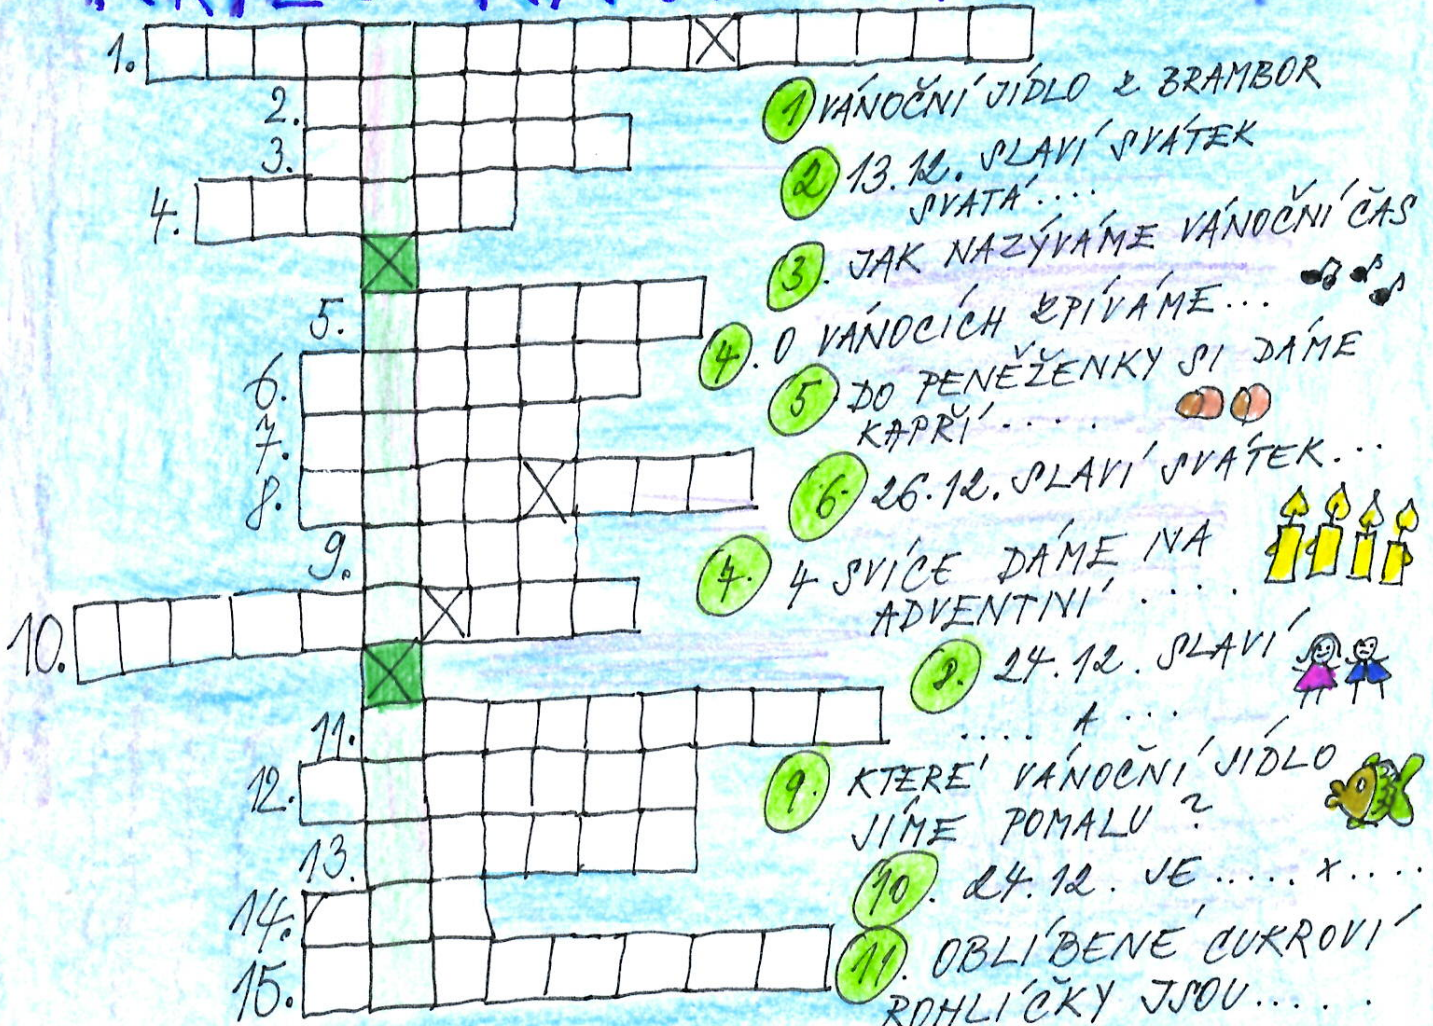 1.
2.
3.
4.
5.
6.
7.
8.
9.
10.
11.
12.
13.
14.
15.
1 VÁNOČNÍ JÍDLO Z BRAMBOR
2 13.12. SLAVÍ SVÁTEK
SVATÁ....
3. JAK NAZÝVÁME VÁNOČNÍ ČAS
4. O VÁNOCÍCH ZPÍVÁME...
5 DO PENĚŽENKY SI DÁME
KAPŘÍ.....
6. 26.12. SLAVÍ SVÁTEK...
7. 4 SVÍCE DÁME NA
ADVENTNÍ ....
8. 24.12. SLAVÍ
.... A ...
9. KTERÉ VÁNOČNÍ JÍDLO
JÍME POMALU?
10. 24.12. JE ..... X ....
11. OBLÍBENÉ CUKROVÍ
ROHLÍČKY JSOU.....